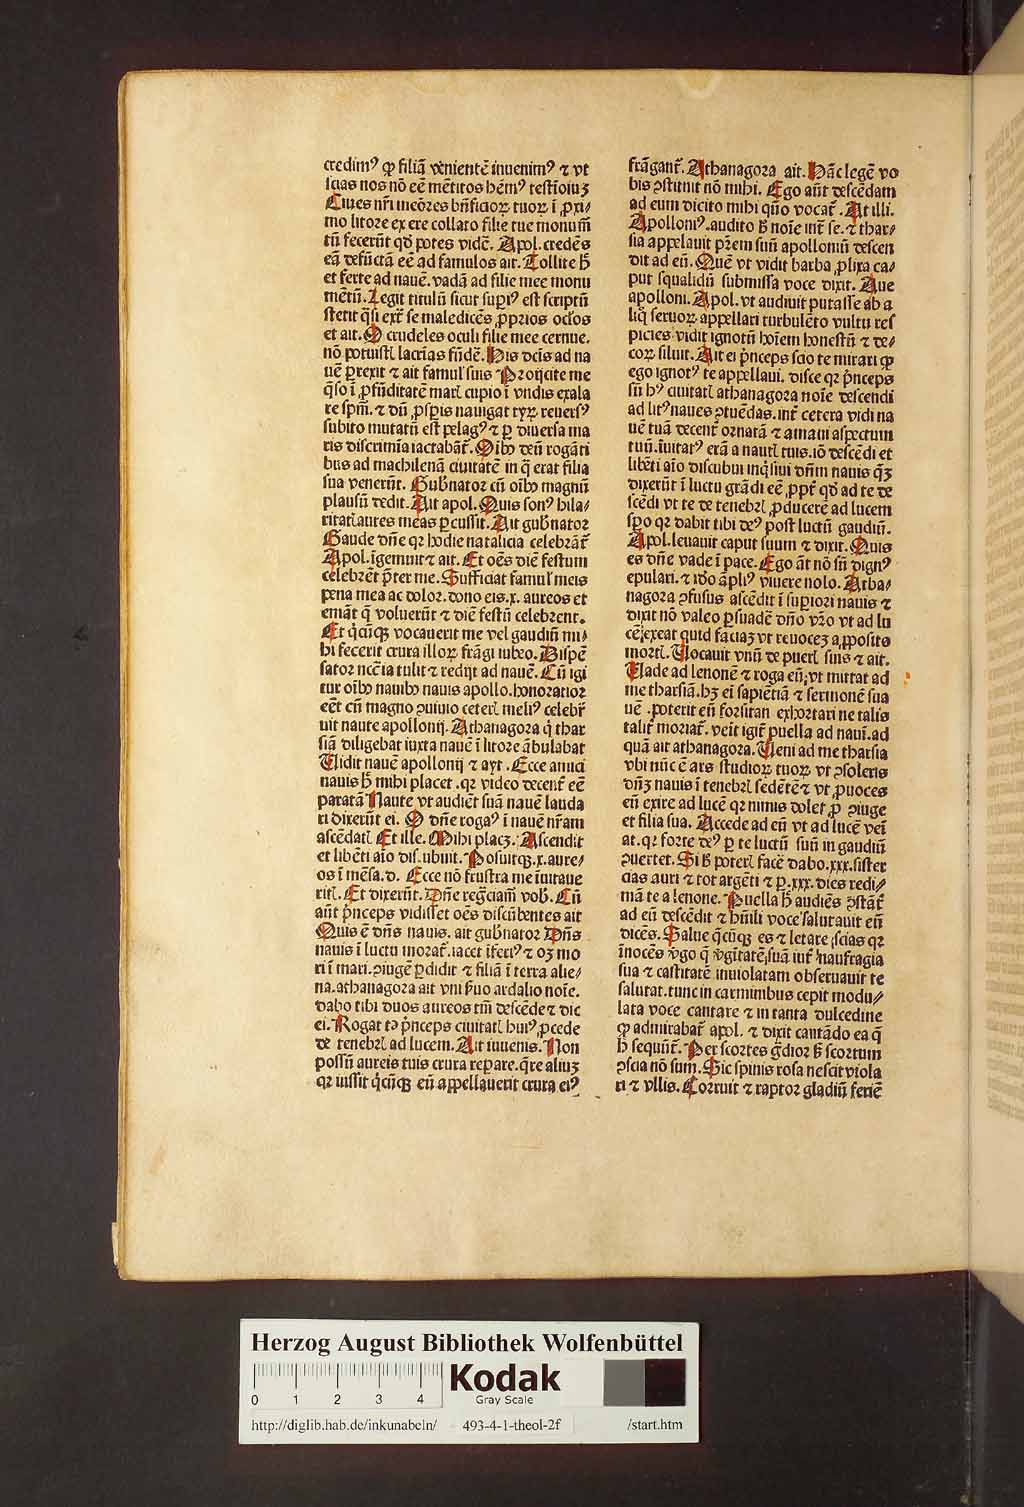 credimꝰ ꝙ filiā venientē inuenimꝰ ⁊ vt
scias nos nō eē mētitos hēmꝰ testīoiuꝫ
Ciues nr̄i meōres bn̄ficioꝝ tuoꝝ ī ꝓxi⸗
mo litore ex ere collato filie tue monum̄
tū fecerūt qḋ potes vidē. Apol. credēs
eā defūctā eē ad famulos ait. Tollite h̄
et ferte ad nauē. vadā ad filie mee monu
mētū. Legit titulū sicut supiꝰ est scriptū
stetit q̄si extr̄ se maledicēs ꝓprios oclōs
et ait. O crudeles oculi filie mee cernue.
nō potuistꝭ lacrīas fūdē. His dcīs ad na
uē ꝑrexit ⁊ ait famulꝭ suis Proijcite me
q̄so ī ꝓfūditatē marꝭ cupio ī vndis exala
re spm̄. ⁊ dū ꝓspis nauigat tyrꝝ reuersꝰ
subito mutatū est pelagꝰ ⁊ ꝑ diuersa ma
ris discrimīa iactabāt̄. Oībꝫ deū roganti
bus ad machilenā ciuitatē in q̄ erat filia
sua venerūt. Gub̄nator cū oībꝫ magnū
plausū dedit. Ait apol. Quis sonꝰ hila⸗
ritatꝭ aures meas ꝑcussit. Ait gub̄nator
Gaude dn̄e qꝛ hodie natalicia celebrāt̄
Apol. īgemuit ⁊ ait. Et oēs diē festum
celebrēt p̄ter me. Sufficiat famulꝭ meis
pena mea ac dolor. dono eis .x. aureos et
emāt q̄ voluerūt ⁊ diē festū celebrent.
Et q̄cūqꝫ vocauerit me vel gaudiū mi⸗
hi fecerit crura illoꝝ frāgi iubeo. Dispē
sator ncc̄ia tulit ⁊ redijt ad nauē. Cū igi
tur oībꝫ nauibꝫ nauis apollo. honoratior
eēt cū magno ꝯuiuio ceterꝭ meliꝰ celebr̄
uit naute apollonij. Athanagora q̄ thar
siā diligebat iuxta nauē ī litore ābulabat
Vidit nauē apollonij ⁊ ayt. Ecce amici
nauis h̄ mihi placet. qꝛ video decent̄ eē
paratā Naute vt audiēt suā nauē lauda
ri dixerūt ei. O dn̄e rogaꝰ ī nauē nr̄am
ascēdatꝭ Et ille. Mihi placꝫ. Ascendit
et libēti aīo discubuit. Posuitqꝫ .x. aure⸗
os ī mēsa. d. Ecce nō frustra me īuitaue
ritꝭ. Et dixerūt. Dn̄e regr̄ciam̄ vob̄. Cū
aūt p̄nceps vidisset oēs discūbentes ait
Quis ē dn̄s nauis. ait gub̄nator Dn̄s
nauis ī luctu morat̄. iacet īferiꝰ ⁊ oꝫ mo
ri ī mari. ꝯiugē ꝑdidit ⁊ filiā ī terra alie⸗
na. athanagora ait vni ẜuo ardalio noīe.
dabo tibi duos aureos tm̄ descēde ⁊ dic
ei. Rogat te p̄nceps ciuitatꝭ huiꝰ ꝓcede
de tenebrꝭ ad lucem. Ait iuuenis. Non
possū aureis tuis crura reꝑare. q̄re aliuꝫ
qꝛ iussit q̄cūqꝫ eū appellauerit crura eiꝰ
frāgant̄. Athanagora ait. Hāc legē vo
bis ꝯstituit nō mihi. Ego aūt descēdam
ad eum dicito mihi quō vocat̄. At illi.
Apolloniꝰ. audito h̄ noīe int̄ se. ⁊ thar⸗
sia appelauit pr̄em suū apolloniū descen
dit ad eū. Quē vt vidit barba ꝓlixa ca⸗
put squalidū submissa voce dixit. Aue
apolloni. Apol. vt audiuit putasse ab a
liq̄ seruoꝝ appellari turbulēto vultu res
picies vidit ignotū hoīem honestū ⁊ de⸗
coꝝ siluit. Ait ei p̄nceps scio te mirari ꝙ
ego ignotꝰ te appellaui. disce qꝛ p̄nceps
sū hꝰ ciuitatꝭ athanagora noīe descendi
ad litꝰ naues ꝯtuēdas. int̄ cetera vidi na
uē tuā decent̄ ornatā ⁊ amaui aspectum
tuū. īuitatꝰ erā a nautꝭ tuis. iō descēdi et
libēti aīo discubui inq̄siui dn̄m nauis q̄ꝫ
dixerūt ī luctu grādi eē ꝓpt̄ qḋ ad te de
scēdi vt te de tenebrꝭ ꝓducere ad lucem
spo qꝛ dabit tibi deꝰ post luctū gaudiū.
Apol. leuauit caput suum ⁊ dixit. Quis
es dn̄e vade ī pace. Ego āt nō sū dignꝰ
epulari. ⁊ iḋo āpliꝰ viuere nolo. Atha⸗
nagora ꝯfusus ascēdit ī supiori nauis ⁊
dixit nō valeo ꝑsuadē dn̄o vr̄o vt ad lu
cē exeat quid faciaꝫ vt reuoceꝫ a ꝓposito
mortꝭ. Vocauit vnū de puerꝭ suis ⁊ ait.
Vade ad lenonē ⁊ roga eū vt mittat ad
me tharsiā. hꝫ ei sapiētiā ⁊ sermonē sua
uē. poterit eū forsitan exhortari ne talis
talit̄ moriat̄. veit igit̄ puella ad nauī. ad
quā ait athanagora. Veni ad me tharsia
vbi nūc ē ars studioꝝ tuoꝝ vt ꝯsoleris
dn̄ꝫ nauis ī tenebrꝭ sedētē ⁊ vt ꝓuoces
eū exire ad lucē qꝛ nimis dolet ꝓ ꝯiuge
et filia sua. Accede ad eū vt ad lucē veī
at. qꝛ forte deꝰ ꝑ te luctū suū in gaudiū
ꝯuertet. Si h̄ poterꝭ facē dabo .xxx. sister
cias auri ⁊ tot argēti ⁊ ꝑ .xxx. dies redi⸗
mā te a lenone. Puella h̄ audiēs ꝯstāt̄
ad eū descēdit ⁊ hūili voce salutauit eū
dicēs. Salue q̄cūqꝫ es ⁊ letare scias qꝛ
īnocēs v̄go q̄ v̄gītatē suā int̄ naufragia
sua ⁊ castitatē inuiolatam obseruauit te
salutat. tunc in carminibus cepit modu⸗
lata voce cantare ⁊ in tanta dulcedine
ꝙ admirabat̄ apol. ⁊ dixit cantādo ea q̄
h̄ sequūt̄. Per scortes ḡdior ẜ scortum
ꝯscia nō sum. Sic spinis rosa nescit viola
ri ⁊ vllis. Corruit ⁊ raptor gladiū feriē
Herzog August Bibliothek Wolfenbüttel
0 1 2 3 4
Kodak
Gray Scale
http://diglib.hab.de/inkunabeln/ 493-4-1-theol-2f /start.htm